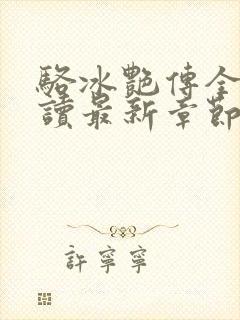 駱冰艷傳全
讀最新章節
許寧寧